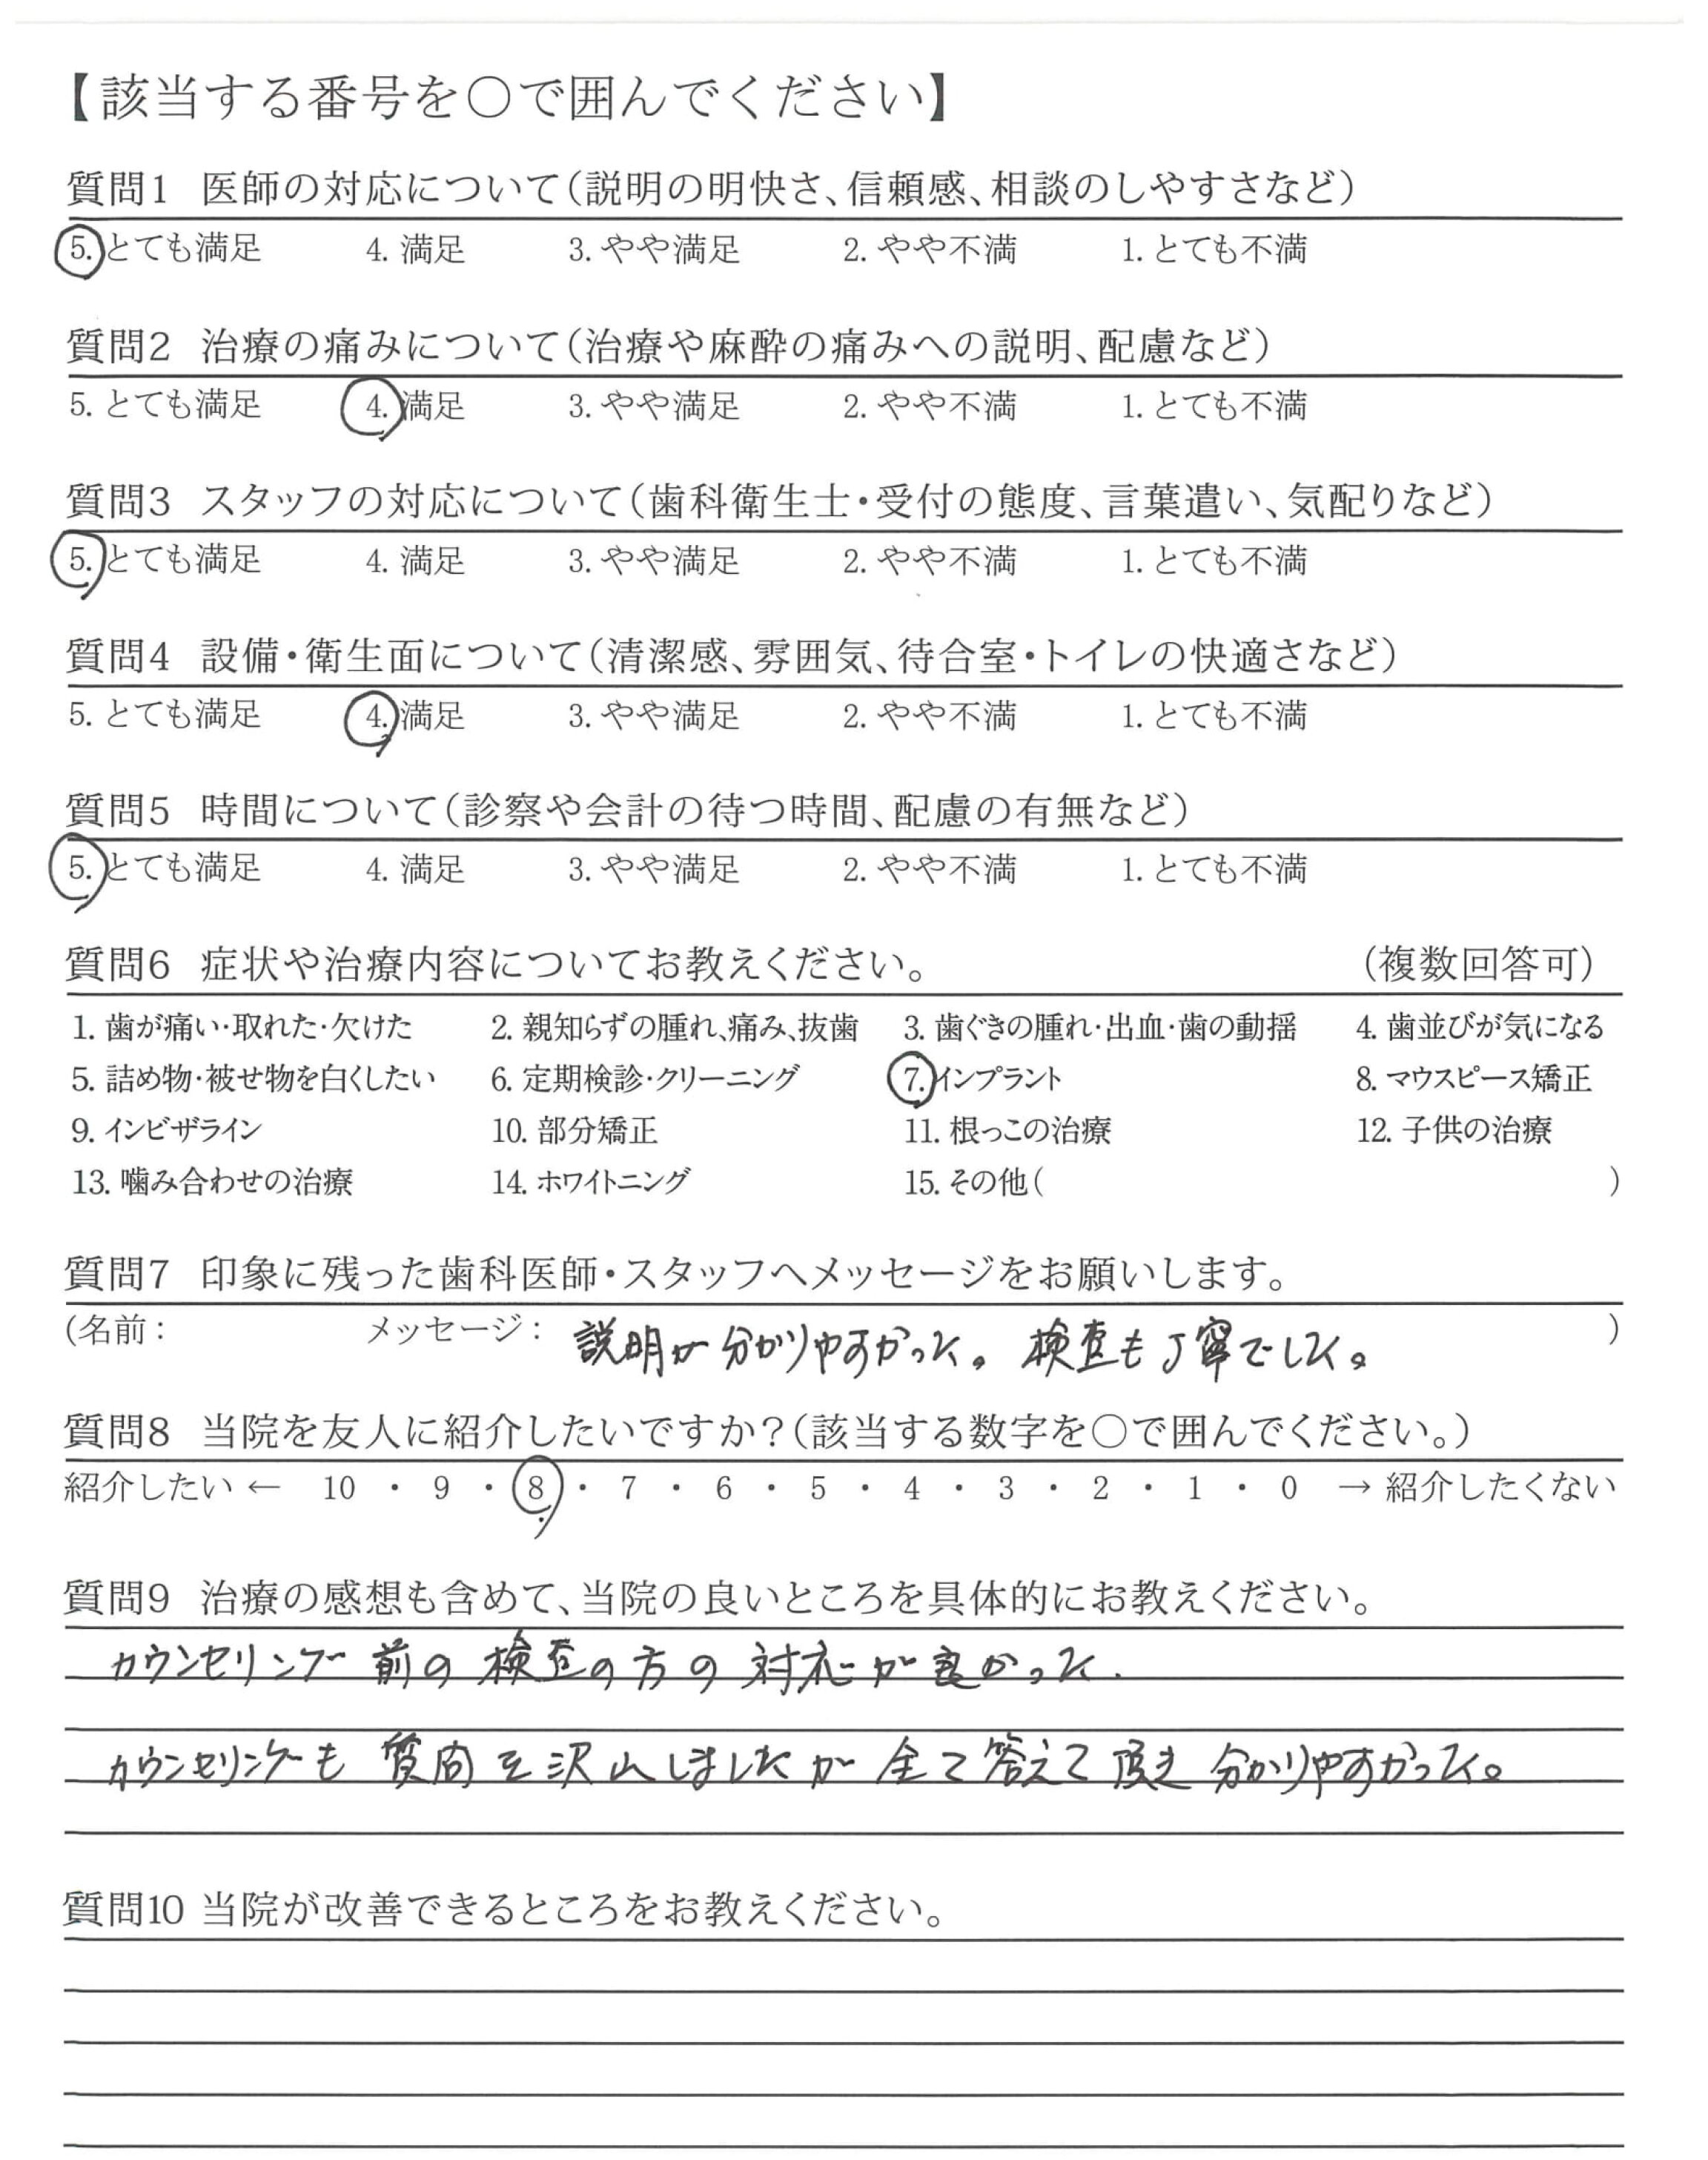 【該当する番号を○で囲んでください】
質問1 医師の対応について(説明の明快さ、信頼感、相談のしやすさなど)
5. とても満足 4. 満足 3. やや満足 2. やや不満 1. とても不満
質問2 治療の痛みについて(治療や麻酔の痛みへの説明、配慮など)
5. とても満足 4. 満足 3. やや満足 2. やや不満 1. とても不満
質問3 スタッフの対応について(歯科衛生士・受付の態度、言葉遣い、気配りなど)
5. とても満足 4. 満足 3. やや満足 2. やや不満 1. とても不満
質問4 設備・衛生面について(清潔感、雰囲気、待合室・トイレの快適さなど)
5. とても満足 4. 満足 3. やや満足 2. やや不満 1. とても不満
質問5 時間について(診察や会計の待つ時間、配慮の有無など)
5. とても満足 4. 満足 3. やや満足 2. やや不満 1. とても不満
質問6 症状や治療内容についてお教えください。 (複数回答可)
1. 歯が痛い・取れた・欠けた 2. 親知らずの腫れ、痛み、抜歯 3. 歯ぐきの腫れ・出血・歯の動揺 4. 歯並びが気になる
5. 詰め物・被せ物を白くしたい 6. 定期検診・クリーニング 7. インプラント 8. マウスピース矯正
9. インビザライン 10. 部分矯正 11. 根っこの治療 12. 子供の治療
13. 噛み合わせの治療 14. ホワイトニング 15. その他( )
質問7 印象に残った歯科医師・スタッフへメッセージをお願いします。
(名前: メッセージ: 説明が分かりやすかった。検査も丁寧でした。 )
質問8 当院を友人に紹介したいですか?(該当する数字を○で囲んでください。)
紹介したい ← 10 ・ 9 ・ 8 ・ 7 ・ 6 ・ 5 ・ 4 ・ 3 ・ 2 ・ 1 ・ 0 → 紹介したくない
質問9 治療の感想も含めて、当院の良いところを具体的にお教えください。
カウンセリング前の検査の方の対応が良かった.
カウンセリングも質問を沢山しましたが全て答えて頂き分かりやすかった。
質問10 当院が改善できるところをお教えください。